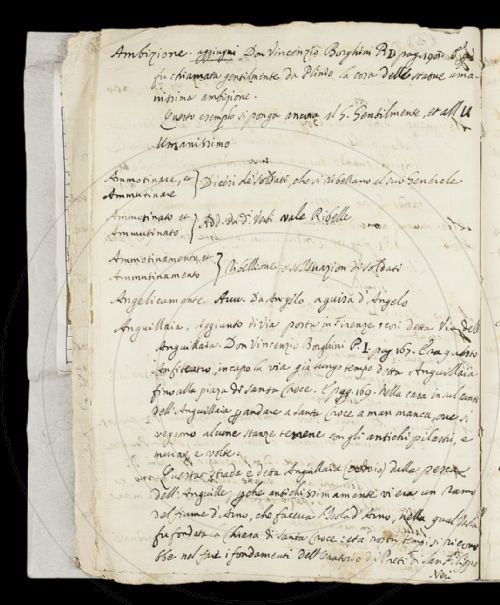 Ambizione. aggiugni Don Vincenzio Borghini P. I. pag.
fu chiamata gentilmente da Plinio la cosa delle statue uma-
nissima ambizione.
Questo esempio si ponga ancora al G. Gentilmente, et all' U
Umanissimo
Ammotinare, et Ammutinare } Dicesi de' Soldati, che si ribellano al suo Generale
Ammotinato et Ammutinato. } Add. da' di Voti vale Ribelle
Ammotinamento, et Ammutinamento } Ribellione, o sollevazion di Soldati
Angelicamente. Avv. Da Angelo, a guisa d'Angelo
Anguillaia, Aggiunto di Via posta in Firenze, così detta Via dell'
Anguillaia. Don Vincenzio Borghini P. I. pag. 167. Era questo
Anfiteatro, in capo la via già lungo tempo detta Anguillaia
fino alla piazza di Santa Croce. E pag. 169. Nella casa in sul canto
dell'Anguillaia p andare a Santa Croce a man manca, ove si
veggono alcune stanze terrene con gli antichi pilastri, e
mura, e volte.
Questa strada è detta Anguillaia (credo io) dalla pesca
dell'Anguille, pche antichissimamente vi era un ramo
del fiume d'Arno, che faceva Isola d'Arno, nella qual Isola
fu fondata la Chiesa di Santa Croce: et a' nostri tempi si riconob-
be nel fare i fondamenti dell'Oratorio di Preti di San Filippo
Neri